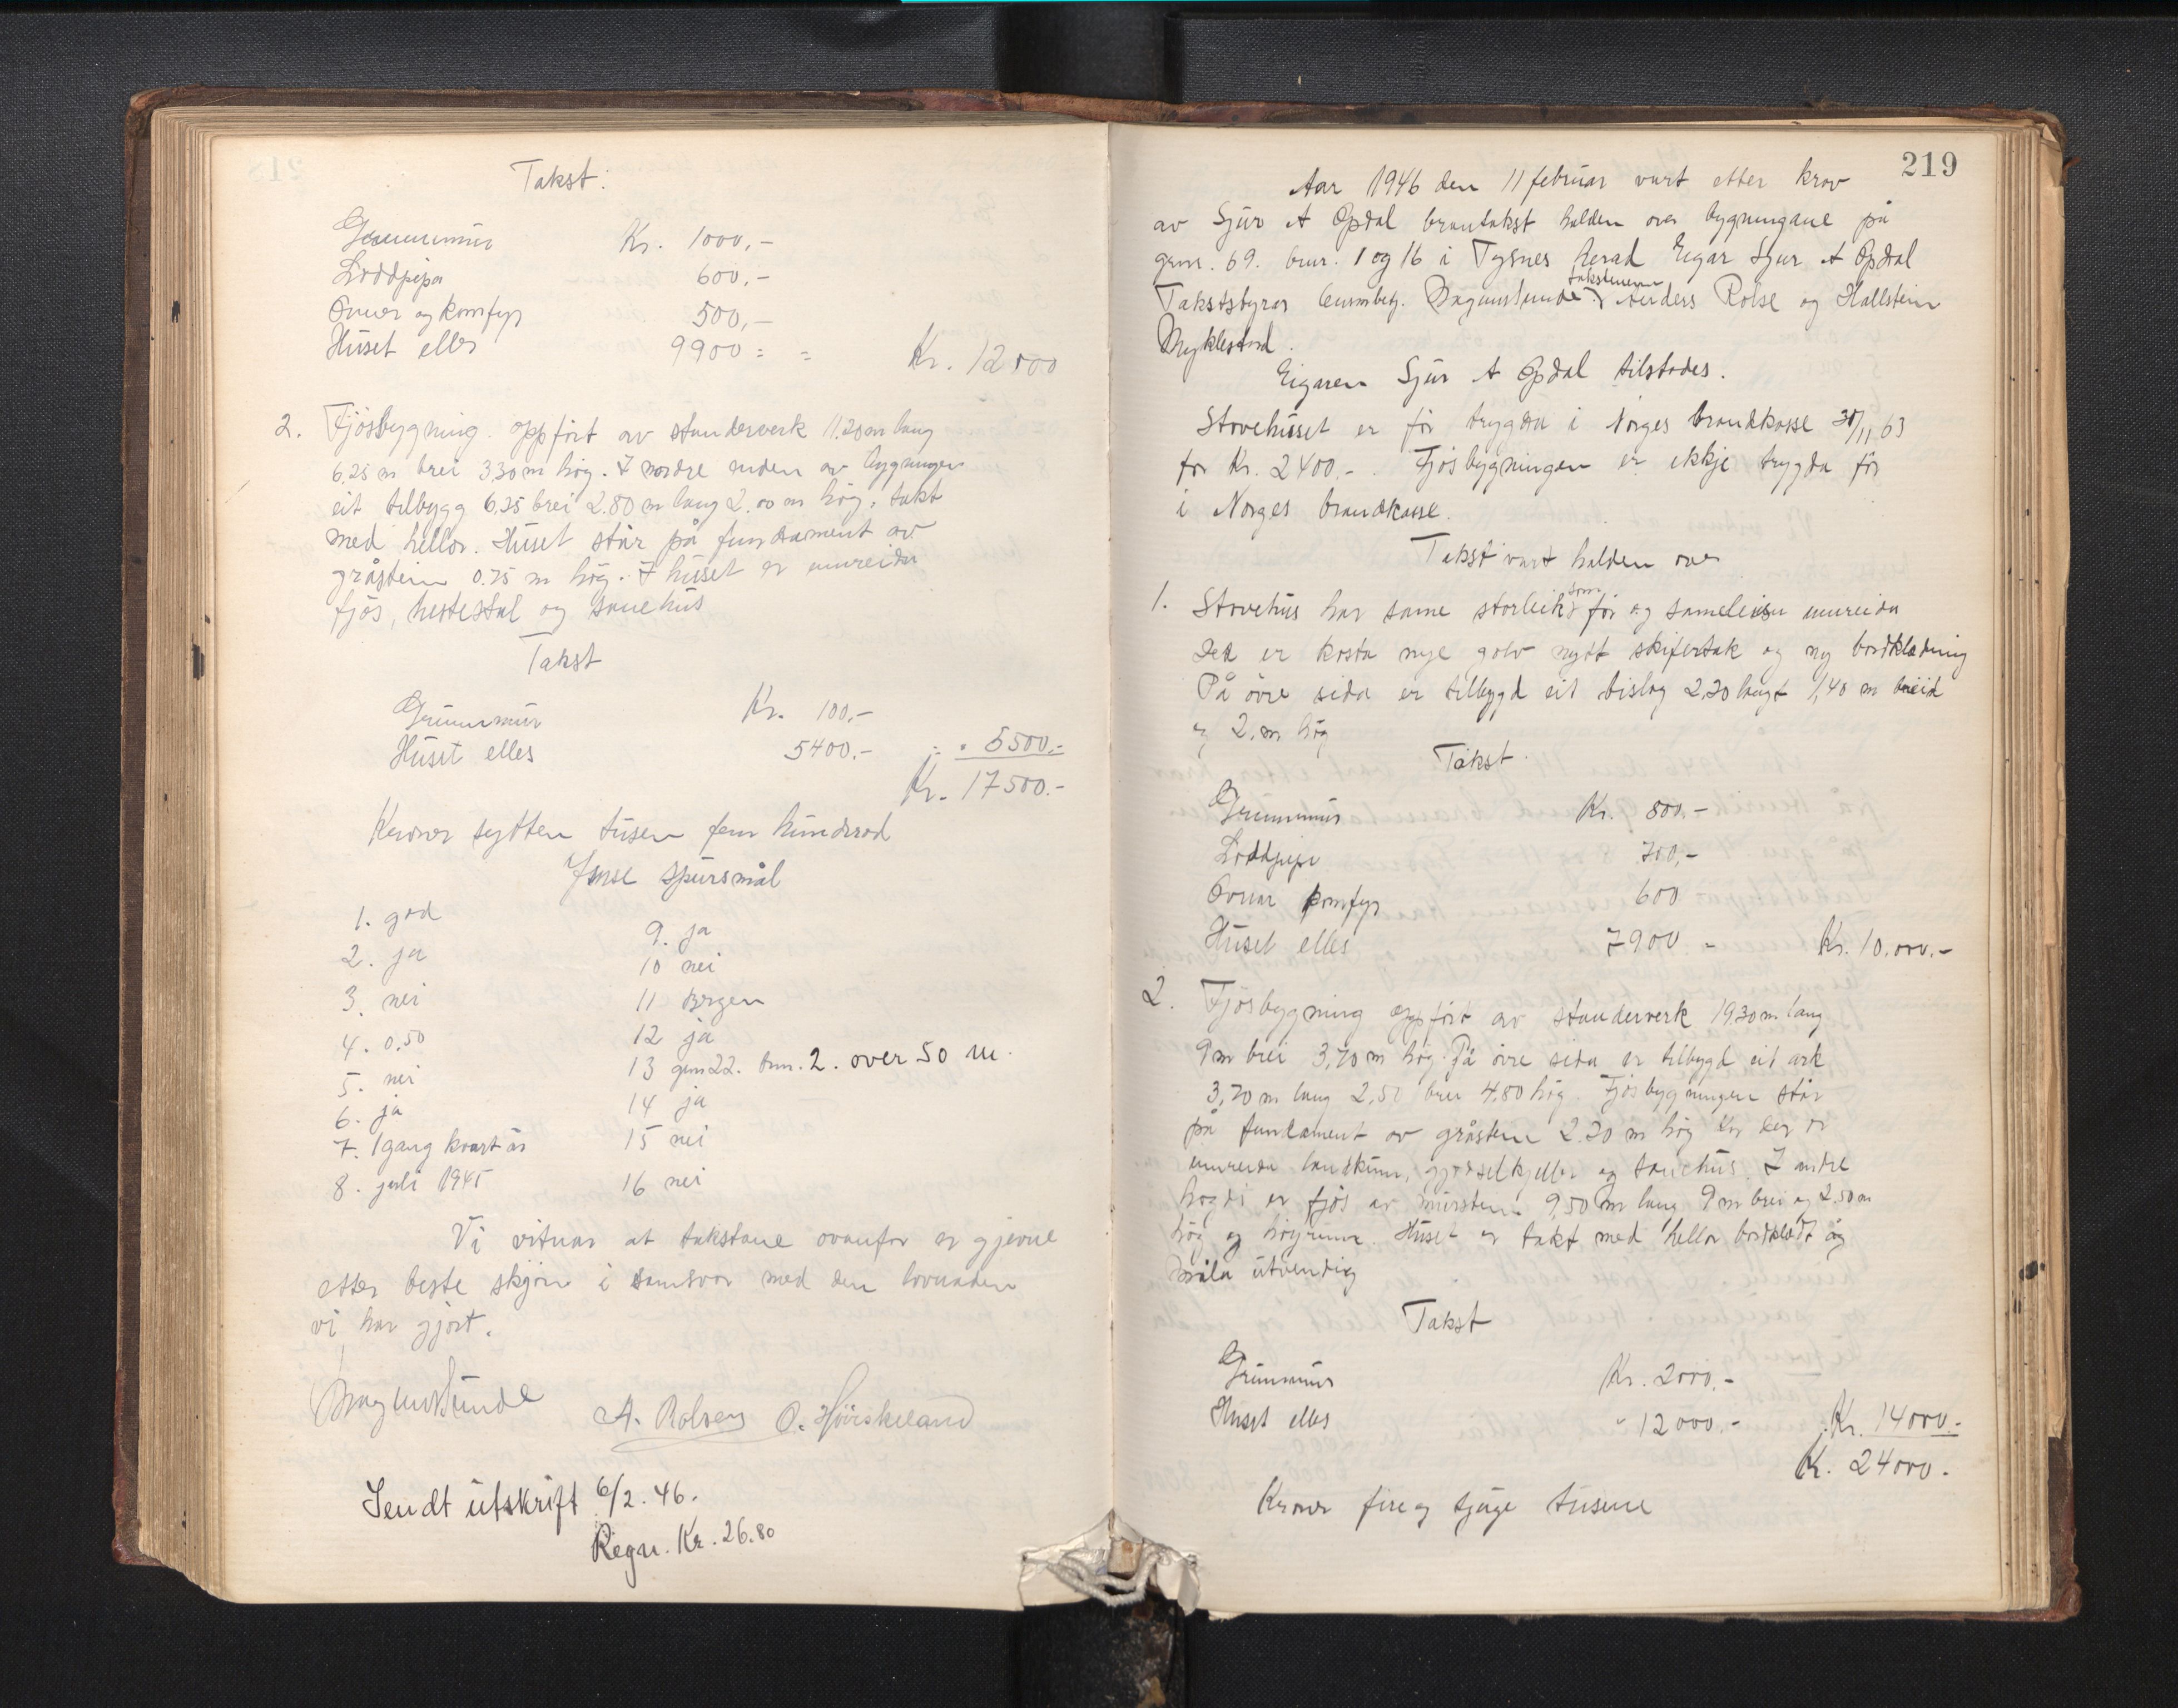 Takst:
Grunnmur Kr. 1000,-
Loddpipa 600,-
Ovner og komfyr 500,-
Huset elles 9900 = = Kr. 12000
2. Fjösbygning. oppfört av standerverk 11.20 m lang
6.25 m brei 3.30 m hög. I nordre enden av bygningen
eit tilbygg 6.25 brei 2.80 m lang 2.00 m hög, takt
med hellor. Huset står på fundament av
gråstein 0.75 m hög. I huset er innreidu
fjös, hestestal og sauehus
Takst
Grunnmur Kr. 100,-
Huset elles 5400.- 5500,-
Kr. 17500.-
Kroner sytten tusen fem hundrad
Ymse spursmål
1. god
2. ja
3. nei
4. 0.50
5. nei
6. ja
7. 1 gang kvart år
8. juli 1945
9. ja
10 nei
11 Bergen
12 ja
13 gnr 22. bnr. 2. over 50 m.
14 ja
15 nei
16 nei
Vi vitnar at takstane ovanfor er gjevne
etter beste skjön i samsvar med den lovnaden
vi har gjort.
Magnus Sunde A. Rolsen O. Hövskeland
Sendt utskrift 6/2. 46.
Regn. Kr. 26.80
219
Aar 1946 den 11 februar vart etter krav
av Sjur A Opdal brantakst halden over bygningane på
gnr. 69. bnr. 1 og 16 i Tysnes herad Eigar Sjur A Opdal
takstmenn
Takststyrar lensmbetj. Magnus Sunde Anders Rolse og Hallstein
Myklestad.
Eigaren Sjur A Opdal tilstades.
Stovehuset er för trygda i Norges brandkasse 30/11 63
for Kr. 2400.-. Fjösbygningen er ikkje trygda för
i Norges brandkasse.
Takst vart halden over
1. Stovehus har same storleik som för og sameleisn innreidu
Det er kosta nye golv nytt skifertak og ny bordkledning
På övre sida er tilbygd eit bislag 2,20 langt 1,40 m breid
og 2. m hög
Takst.
Grunnmur Kr. 800.-
Loddpipe 700,-
Ovnar komfyr 600
Huset elles 7900 - Kr. 10.000.-
2. Fjösbygning oppfört av standerverk 19.30 m lang
9 m brei 3,70 m hög. På övre sida er tilbygd eit ark
3,70 m lang 2,50 brei 4.80 hög. Fjösbygningen står
på fundament av gråstein 2.20 m hög
innreidu landkum, gjödselkjeller og sauehus. I andre
högdi er fjös av murstein 9,50 m lang 9 m brei og 2.50 m
hög og höyrum. Huset er takt med hellor bordkledt og
måla utvendig
Takst
Grunnmur Kr. 2000.-
Huset elles " 12000.- Kr. 14000.-
Kr. 24000.-
Kroner fire og tjuge tusene